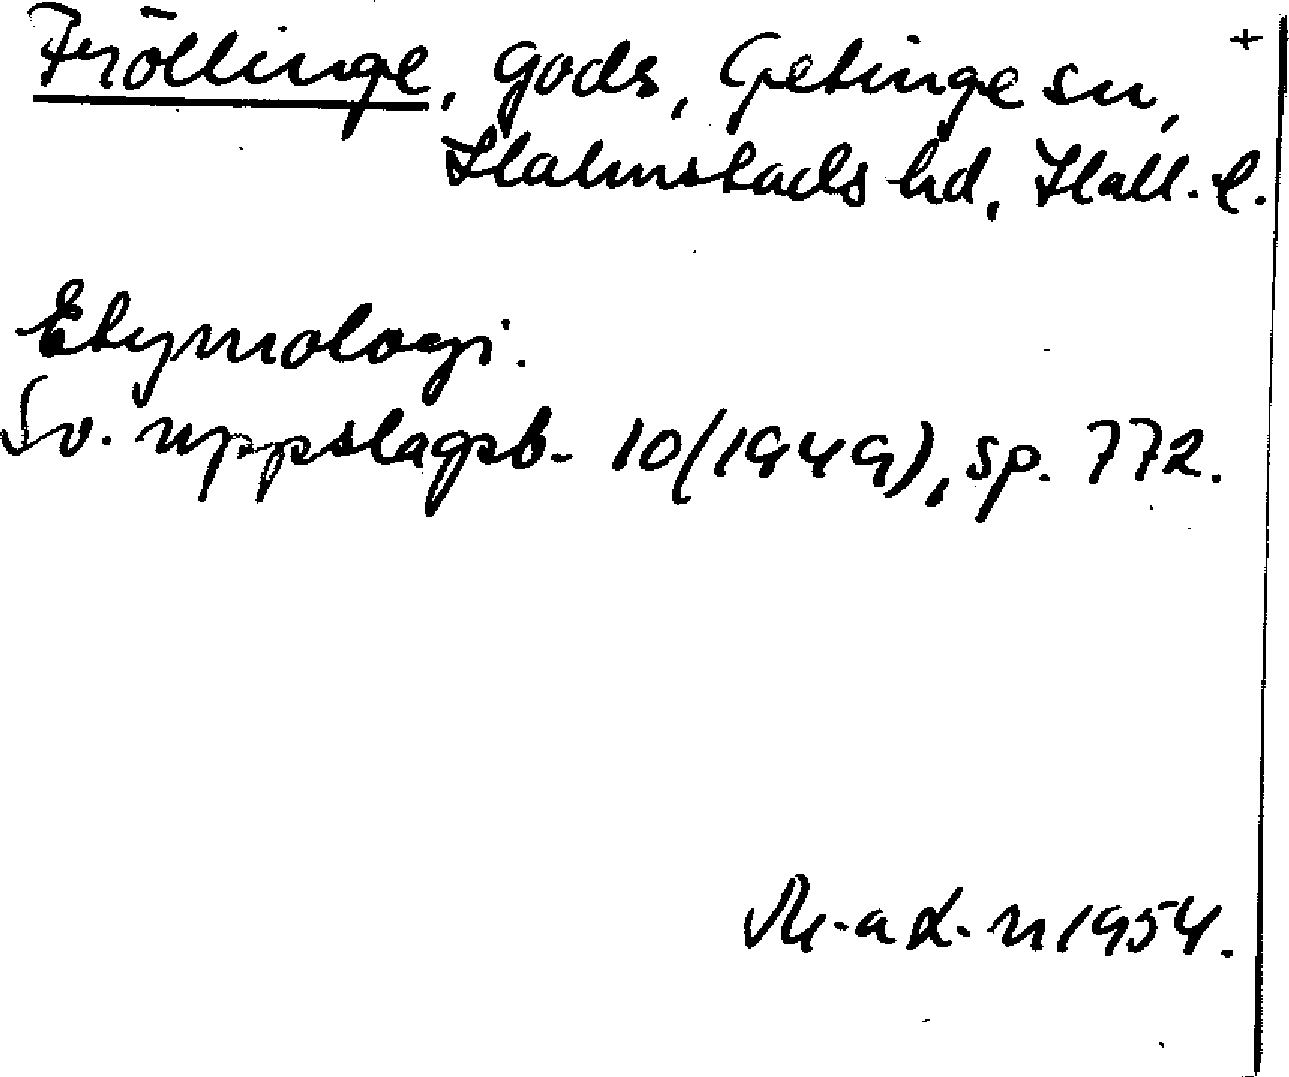 Fröllinge, gods, Getinge sn, +
Halmstads hd, Hall. l.
Etymologi.
Sv. uppslagsb. 10 (1949), sp. 772.
1954.